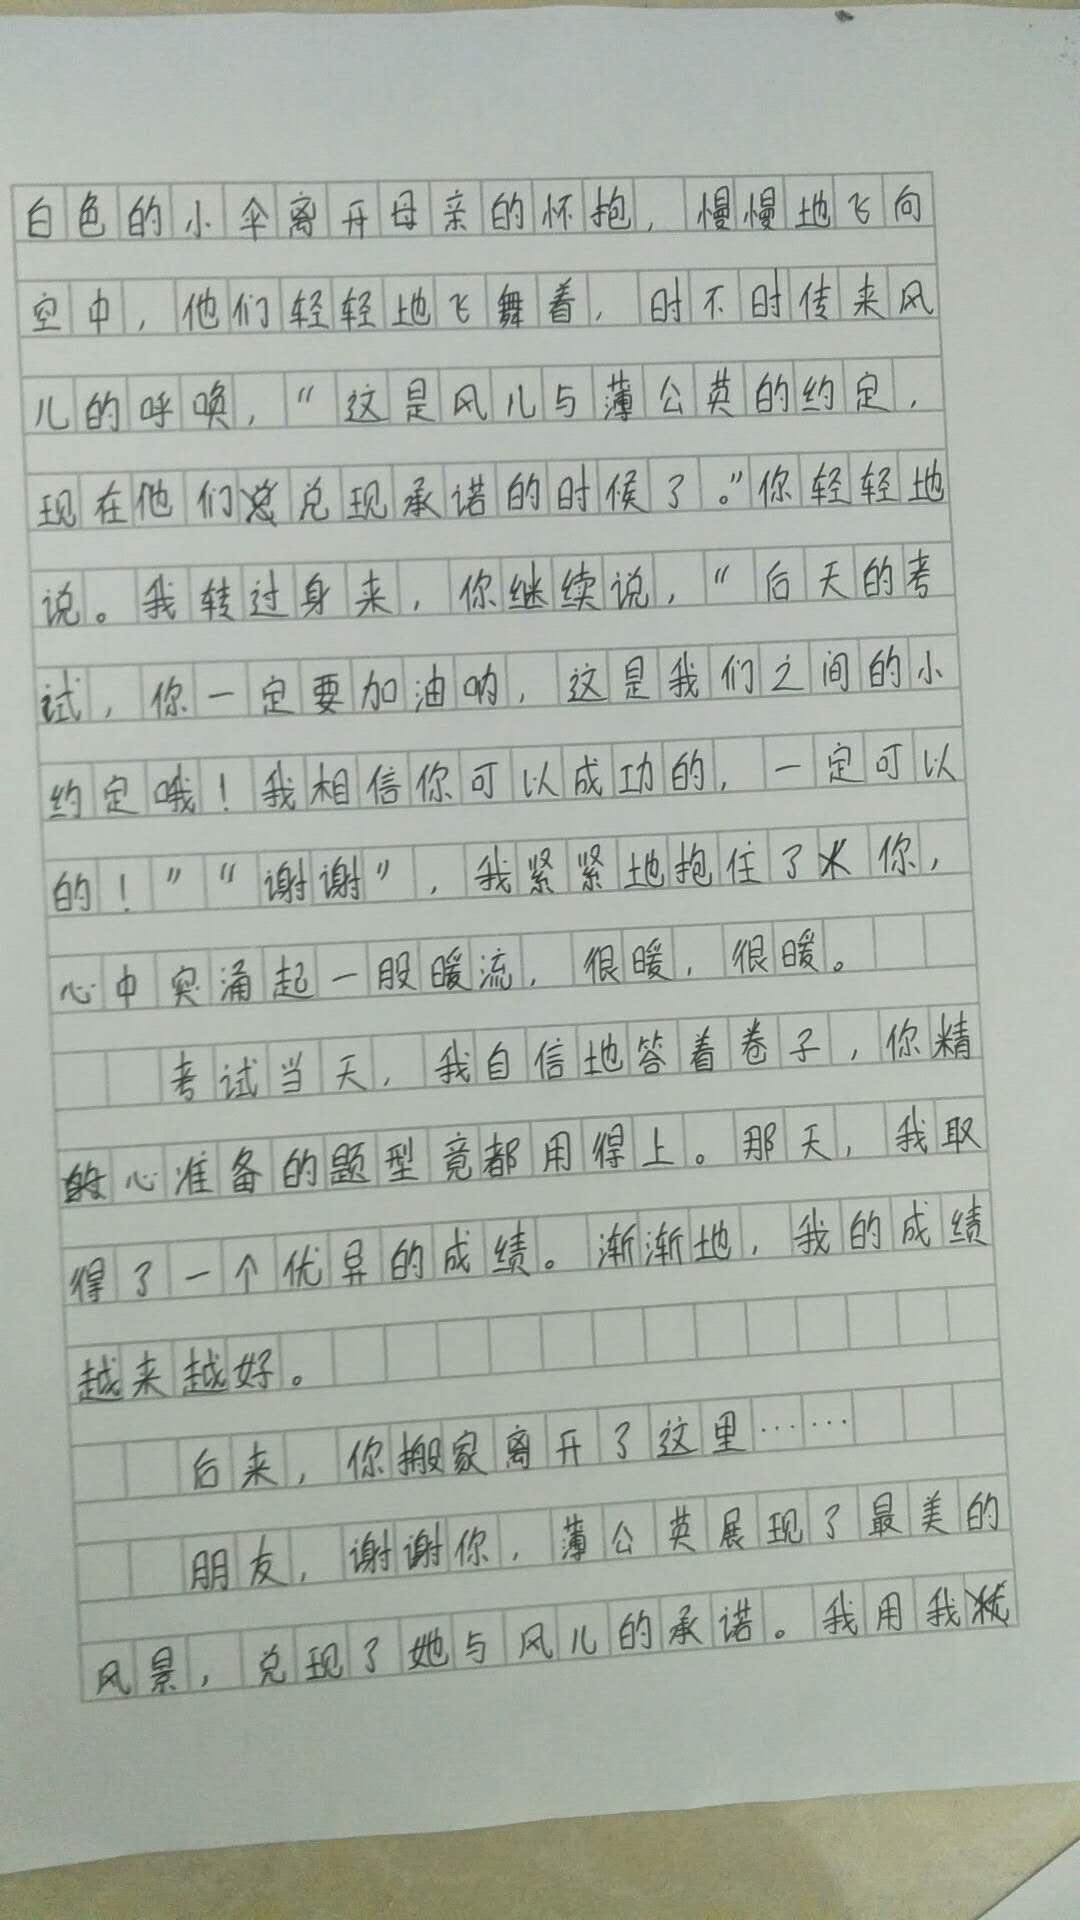 白色的小伞离开母亲的怀抱，慢慢地飞向
空中，他们轻轻地飞舞着，时不时传来风
儿的呼唤，“这是风儿与薄公英的约定，
现在他们兑现承诺的时候了。”你轻轻地
说。我转过身来，你继续说，“后天的考
试，你一定要加油呐，这是我们之间的小
约定哦！我相信你可以成功的，一定可以
的！”“谢谢”，我紧紧地抱住了你，
心中突涌起一股暖流，很暖，很暖。
考试当天，我自信地答着卷子，你精
心准备的题型竟都用得上。那天，我取
得了一个优异的成绩。渐渐地，我的成绩
越来越好。
后来，你搬家离开了这里……
朋友，谢谢你，薄公英展现了最美的
风景，兑现了她与风儿的承诺。我用我